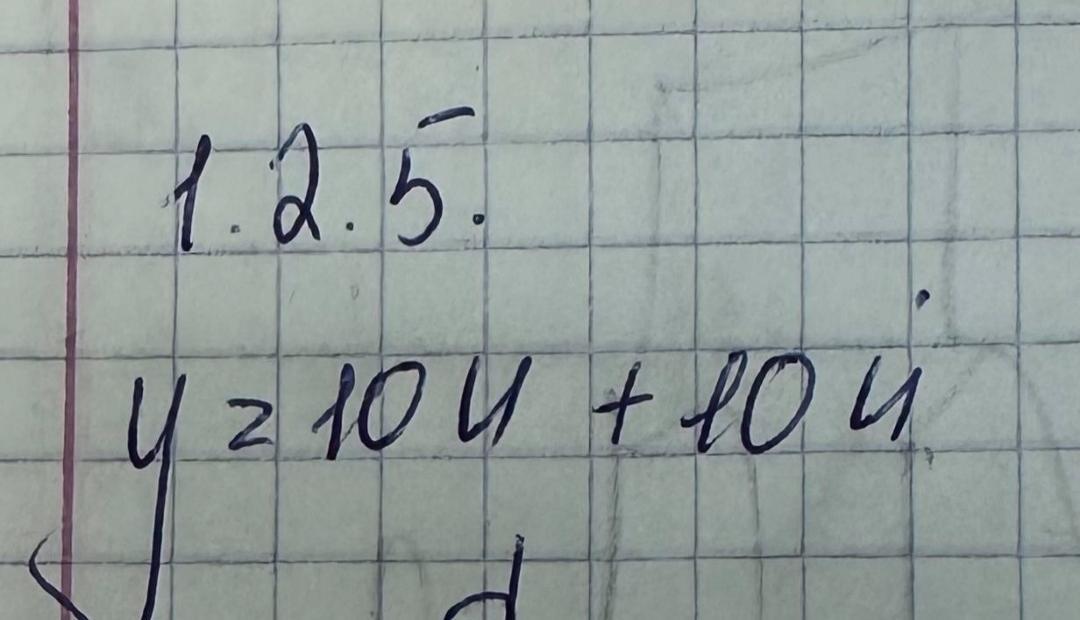 1.2.5.
y = 10u + 10u̇